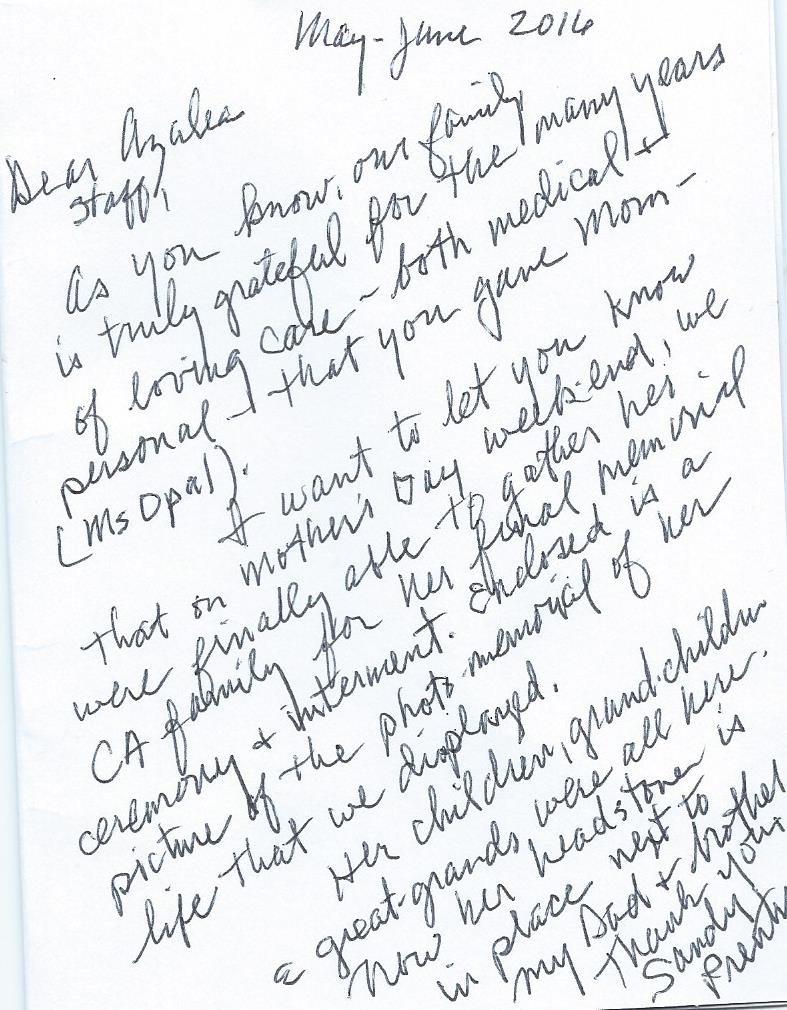 May-June 2016
Dear Azalea
Staff,
As you know, our family
is truly grateful for the many years
of loving care - both medical +
personal - that you gave Mom -
(Ms Opal).
I want to let you know
that on Mother's Day weekend, we
were finally able to gather her
CA family for her final memorial
ceremony + interment. Enclosed is a
picture of the photo memorial of her
life that we displayed.
Her children, grand-children
& great-grands were all here.
Now her headstone is
in place next to
my Dad + brother
Thank you,
Sandy